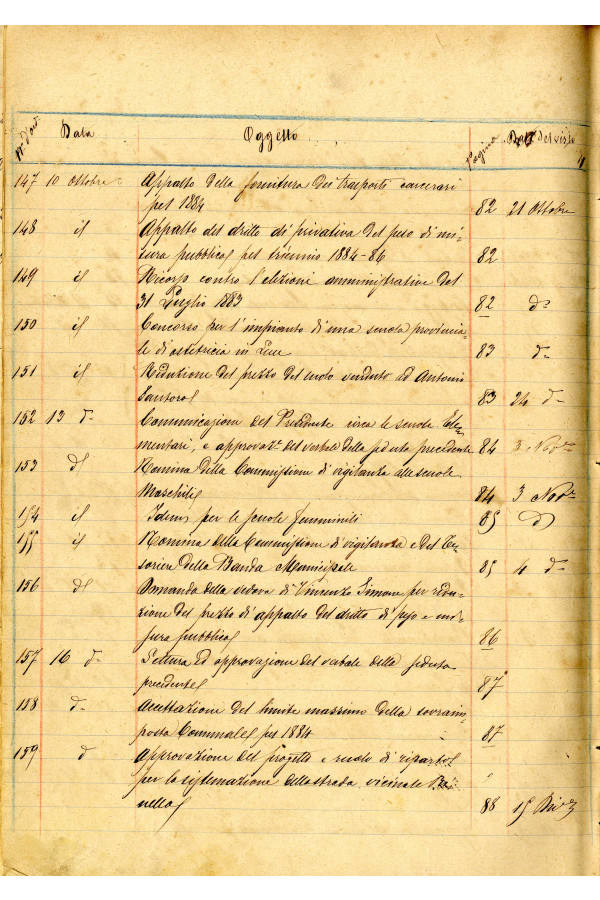 N. d'ord. Data Oggetto Pagina Data del visto
147 10 Ottobre Appalto della fornitura dei trasporti carcerari
pel 1884 82 21 Ottobre
148 id Appalto del dritto di privativa del peso di mi-
sura pubblica pel triennio 1884-86 82
149 id Ricorso contro l'elezioni amministrative del
31 Luglio 1883 82 do
150 id Concorso per l'impianto di una scuola provincia-
le di ostetricia in Lecce 83 do
151 id Riduzione del prezzo del suolo venduto ad Antonio
Santoro 83 24 do
152 13 do Comunicazioni del Presidente circa le scuole Ele-
mentari, e approvaz. del verbale della seduta precedente 84 3 Nove
153 do Nomina della Commissione di vigilanza alle scuole
Maschili 84 3 Nove
154 id Idem per le scuole femminili 85 do
155 id Nomina della Commissione di vigilanza e del Te-
soriere della Banda Municipale 85 4 do
156 do Domanda della vedova di Vincenzo Simone per ridu-
zione del prezzo di appalto del dritto di peso e mi-
sura pubblica 86
157 16 do Lettura ed approvazione del verbale della seduta
precedente 87
158 do del limite massimo della sovraim-
posta Comunale pel 1884 87
159 do Approvazione del progetto e ruolo di riparto
per la sistemazione della strada vicinale
nella 88 15